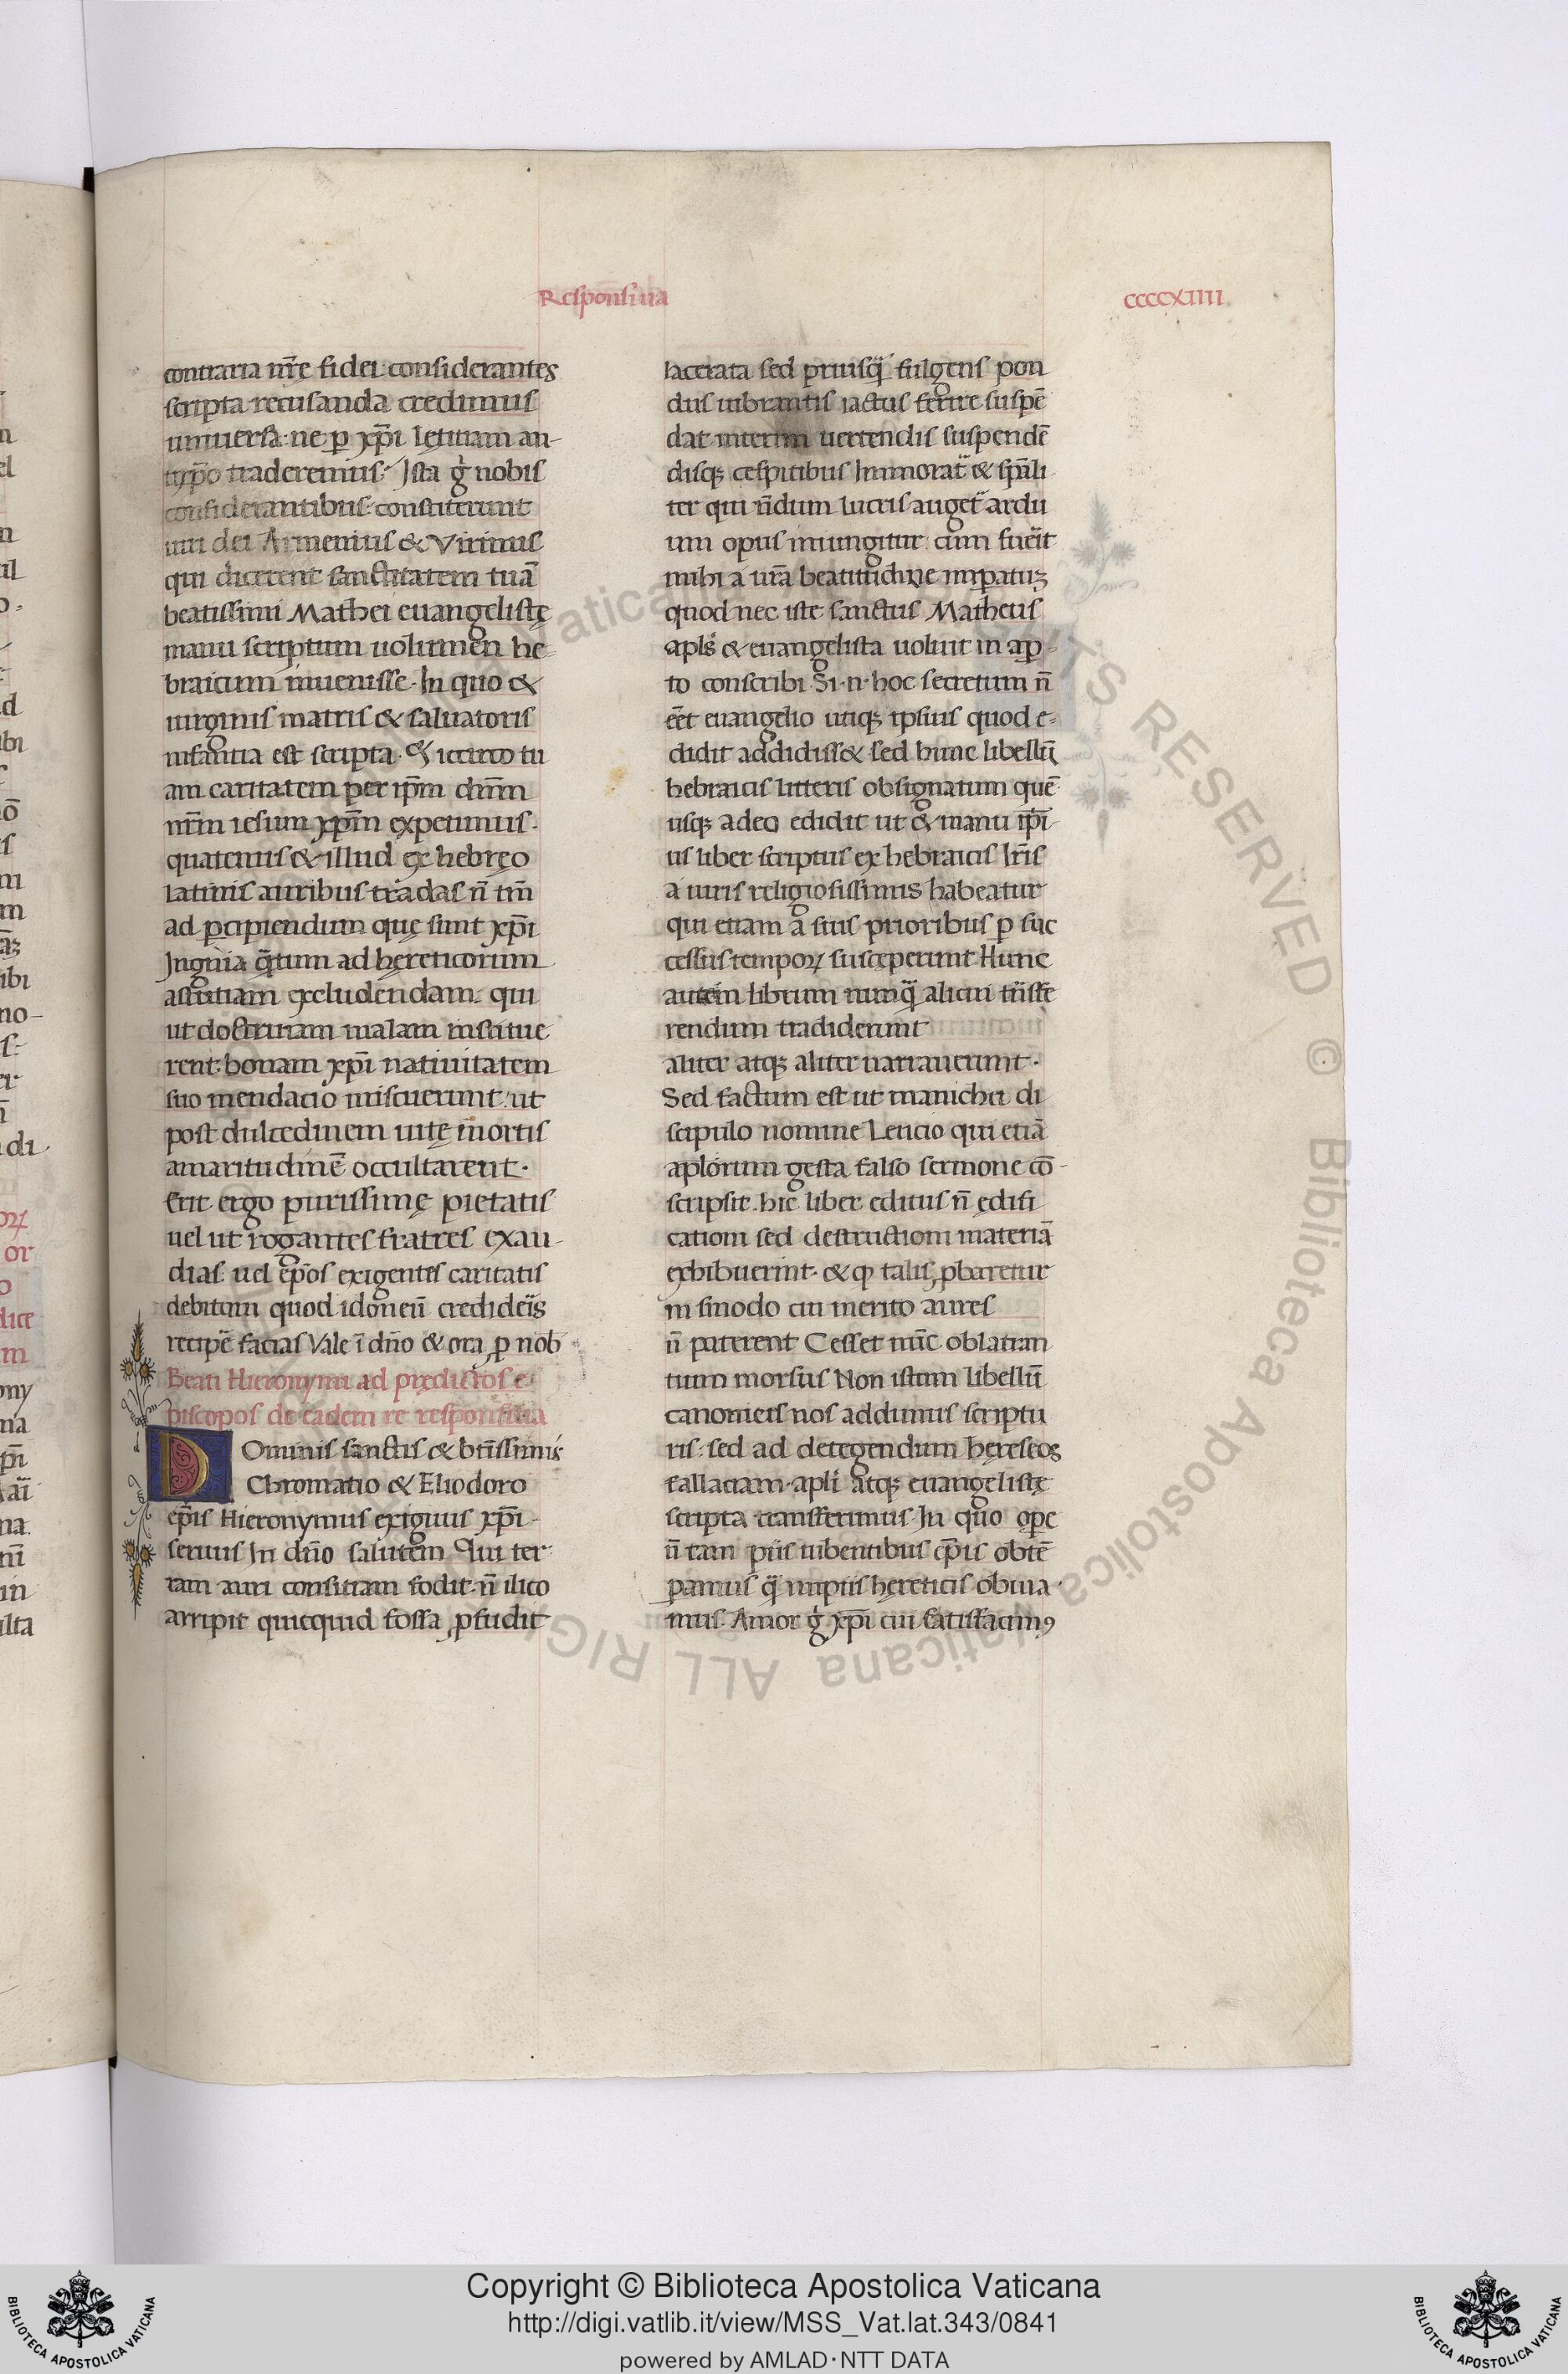 Responsiua
ccccxiiii
contraria nr̄e fidei: considerantes
scripta recusanda credimus
uniuersa: ne ꝑ xp̄i lętitiam an-
tixp̄o traderemus. Ista ġ nobis
considerantibus: constiterunt
uiri dei Armenius & Virinus
qui dicerent sanctitatem tuā
beatissimi Mathei euangelistę
manu scriptum uolumen he-
braicum inuenisse. In quo &
uirginis matris & saluatoris
infantia est scripta. & iccirco tu
am caritatem per ip̄m dn̄m
nr̄m iesum xp̄m expetimus.
quatenus & illud ex hebręo
latinis auribus tradas n̄ tm̄
ad ꝑcipiendum quę sunt xp̄i
Insignia q̄tum ad hęreticorum
astutiam excludendam. qui
ut doctrinam malam institue
rent: bonam xp̄i natiuitatem
suo mendacio miscuerunt: ut
post dulcedinem uitę mortis
amaritudinē occultarent.
Erit ergo purissimę pietatis
uel ut rogantes fratres exau-
dias: uel ep̄os exigentes caritatis
debitum quod idoneū credideris
recipe facias Vale ī dn̄o & ora ꝓ nob
Beati Hieronymi ad prędictos e
piscopos de eadem re responsiua
DOminis sanctis & btīssimis
Chromatio & Eliodoro
ep̄is Hieronymus exiguus xp̄i
seruus In dn̄o salutem Qui ter
ram auri consitiam fodit: n̄ ilico
arripit quicquid fossa ꝓfudit
lacerata sed priusq̄ fulgens pon
dus uibrantis iactus ferire suspē
dat interim uertendis suspendē
disq; cespitibus Immorat̄ & sp̄ali
ter qui n̄dum lucris auget̄ ardu
um opus iniungitur cum fuerit
mihi a ur̄a beatitudine imperatuȝ
quod nec iste sanctus Matheus
apls̄ & euangelista uoluit in aꝑ-
to conscribi. Si. n. hoc secretum n̄
eēt euangelio utiq; ipsius quod e-
didit addidiss& sed hunc libellū
hebraicis litteris obsignatum quē
usq; adeo edidit ut & manu ip̄i
us liber scriptus ex hebraicis lr̄is
a uiris religiosissimis habeatur
qui etiam a suis prioribus ꝑ suc
cessus tempoꝝ susceperunt Hunc
autem librum nunq̄ alicui trāsfe
rendum tradiderunt
aliter atq; aliter narrauerunt.
Sed factum est ut manichei di
scipulo nomine Leucio qui etiā
aplorum gesta falso sermone cō-
scripsit. hic liber editus n̄ ędifi
cationi sed destructioni materiā
exhibuerint. & ꝙ talis ꝓbaretur
in sinodo cui merito aures
n̄ paterent Cesset nūc oblatran
tium morsus Non istum libellū
canonicis nos addimus scriptu
ris: sed ad detegendum hęreseos
fallaciam. apli atq; euangelistę
scripta transferimus. In quo oꝑe
n̄ tam piis iubentibus ep̄is obtē
ꝑamus q̄ impiis hęreticis obuia
mus. Amor ġ xp̄i cui satisfacimꝰ
Copyright © Biblioteca Apostolica Vaticana
http://digi.vatlib.it/view/MSS_Vat.lat.343/0841
powered by AMLAD·NTT DATA